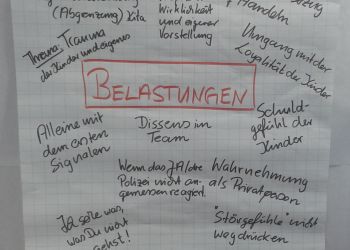 (Abgrenzung) Kita
Wirklichkeit
und eigener
Vorstellung
Handeln
Umgang mit der
Loyalität der Kinder
Thema: Trauma
der Kinder und eigenes
BELASTUNGEN
Alleine mit
dem ersten
Signalen
Dissens im
Team
Schuld-
gefühl der
Kinder
Wenn das JA/die
Polizei nicht an-
gemessen reagiert.
Wahrnehmung
als Privatperson
Ich sehe was,
was Du nicht
siehst!
"Störgefühle" nicht
wegdrücken